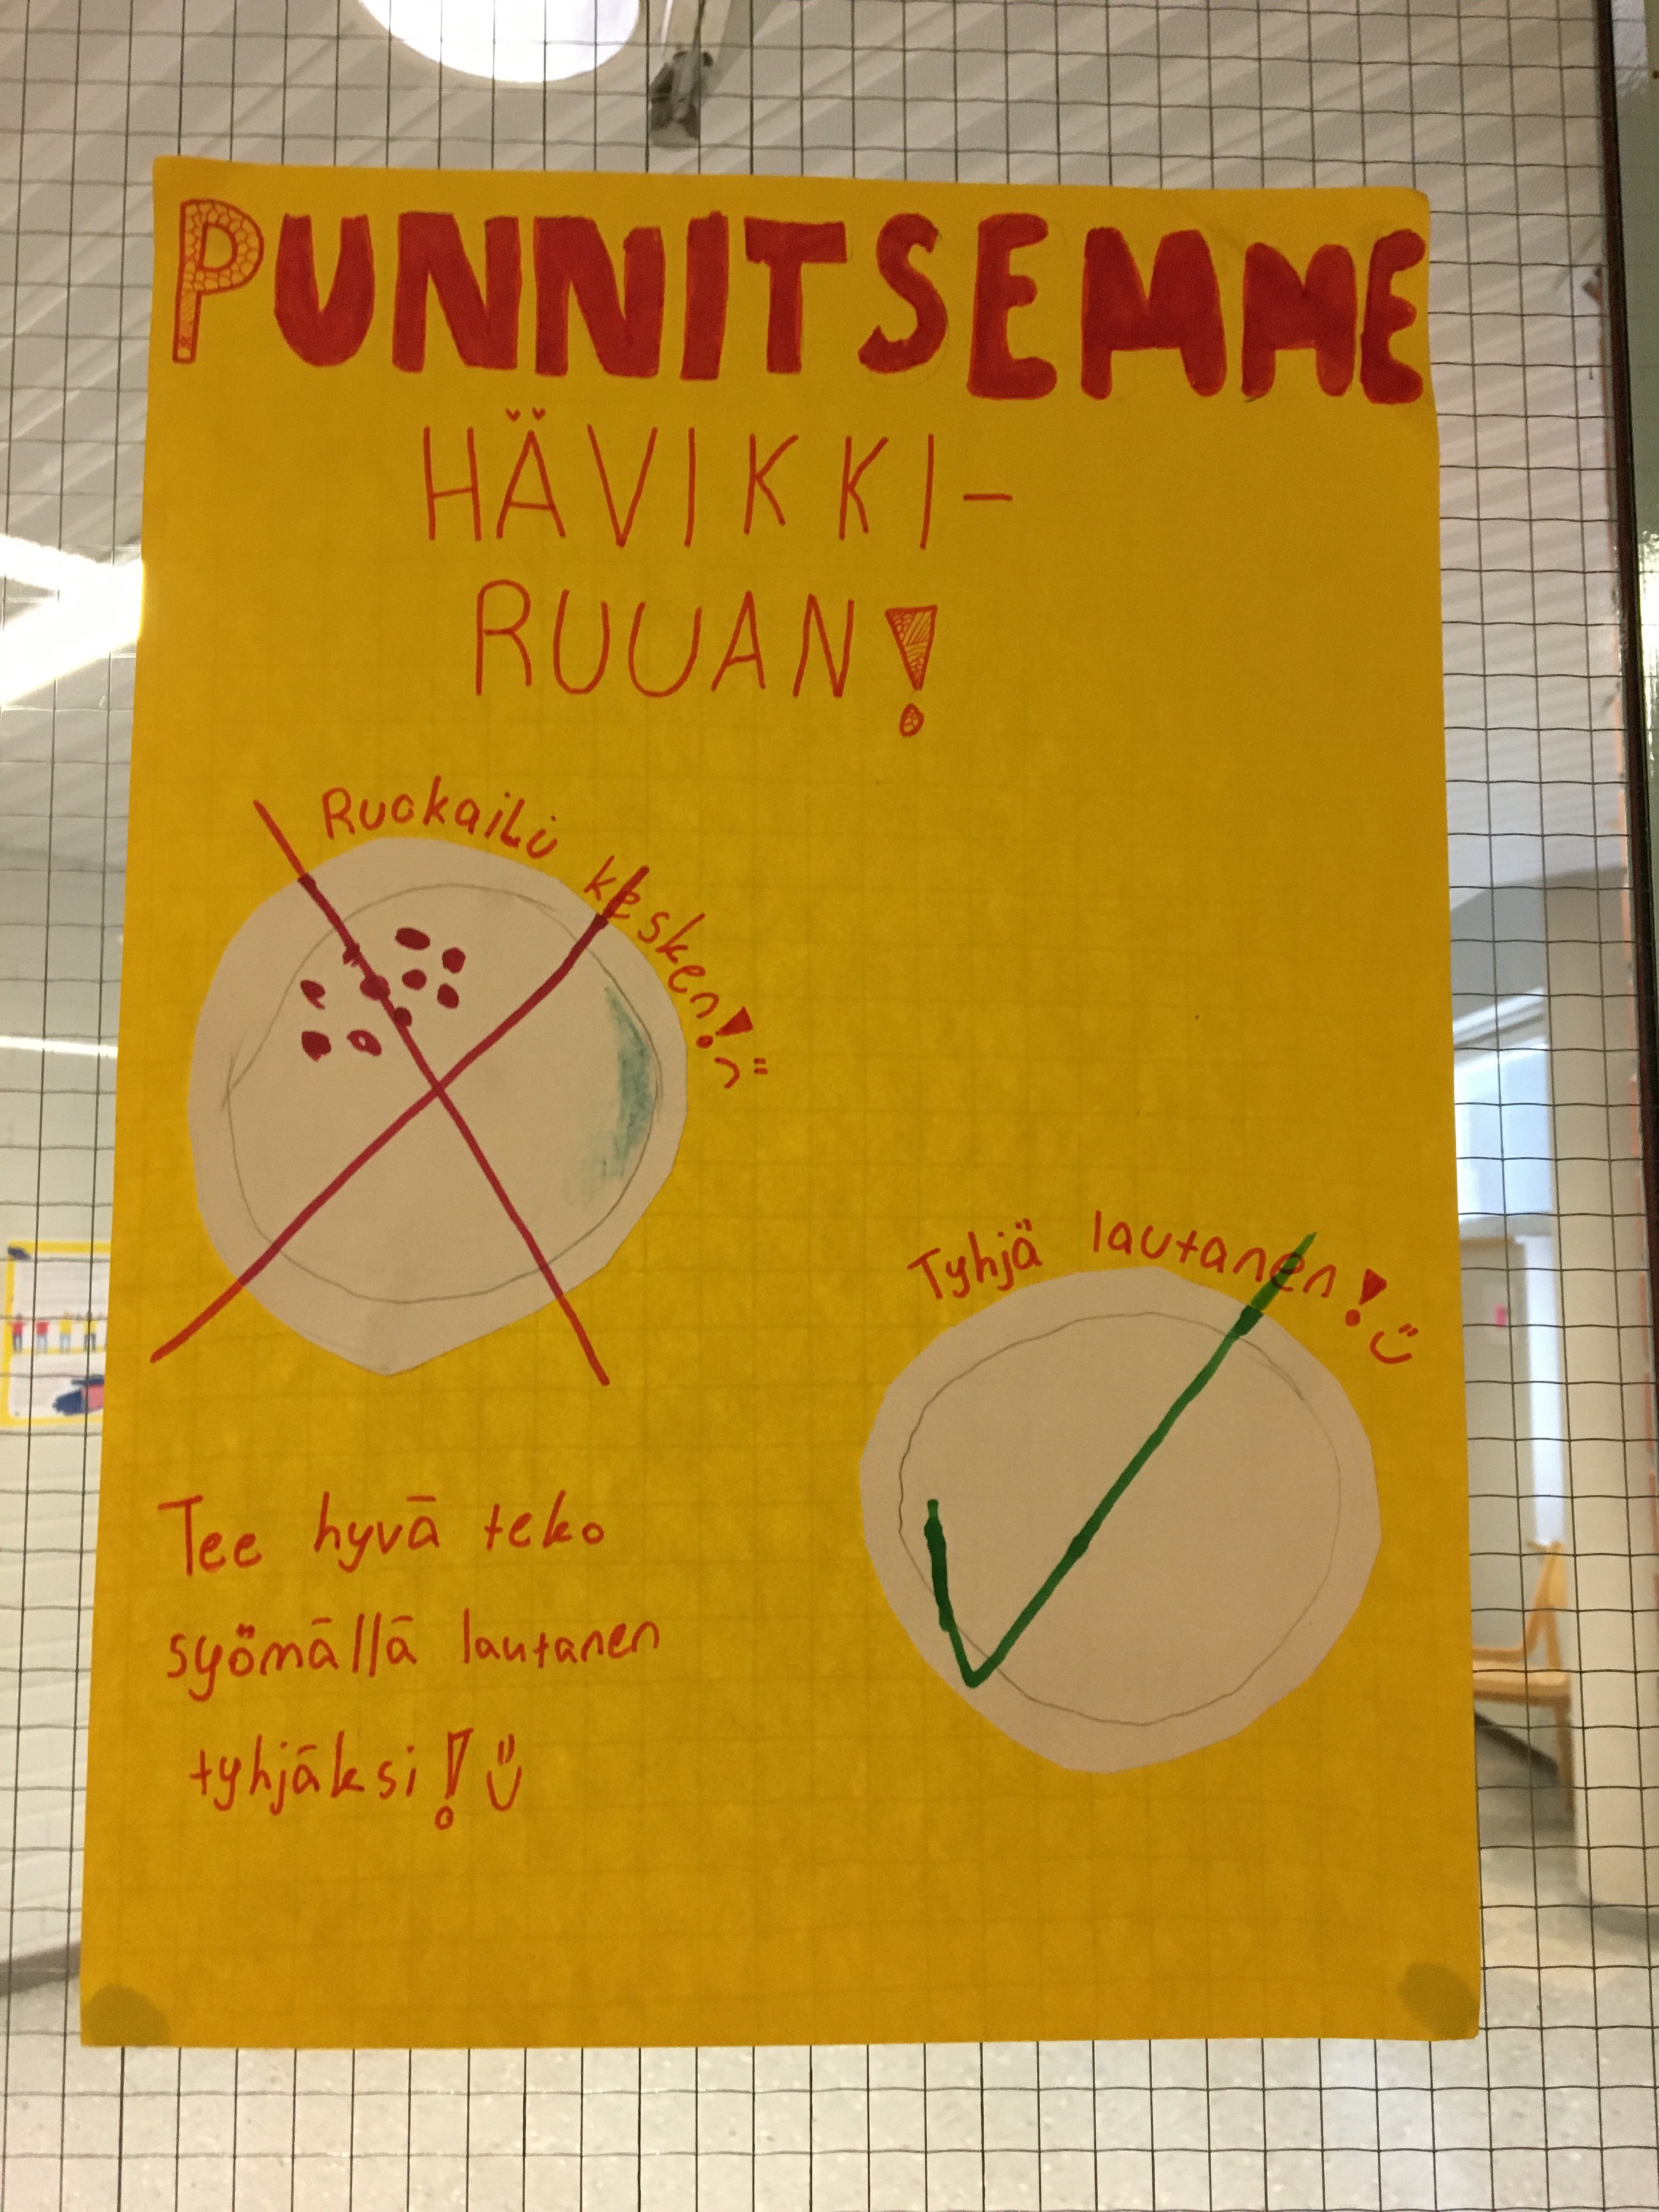 PUNNITSEMME
HÄVIKKI-
RUUAN!
Ruokailu kesken! :(
Tyhjä lautanen! :)
Tee hyvä teko
syömällä lautanen
tyhjäksi! :)